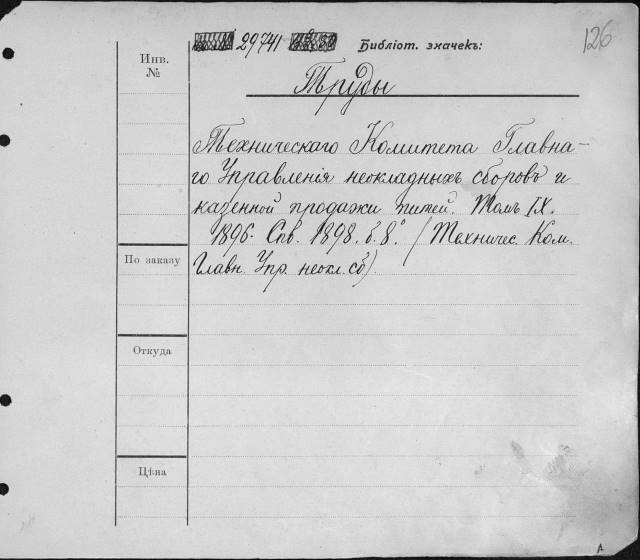 29741 Библіот. значекъ: 126
Инв.
№
Труды
Техническаго Комитета Главна-
го Управленія неокладныхъ сборовъ и
казенной продажи питей. Томъ IX.
1896. Спб. 1898. б. 8°. (Техничес. Ком.
Главн. Упр. неокл. сб)
По заказу
Откуда
Цѣна
А